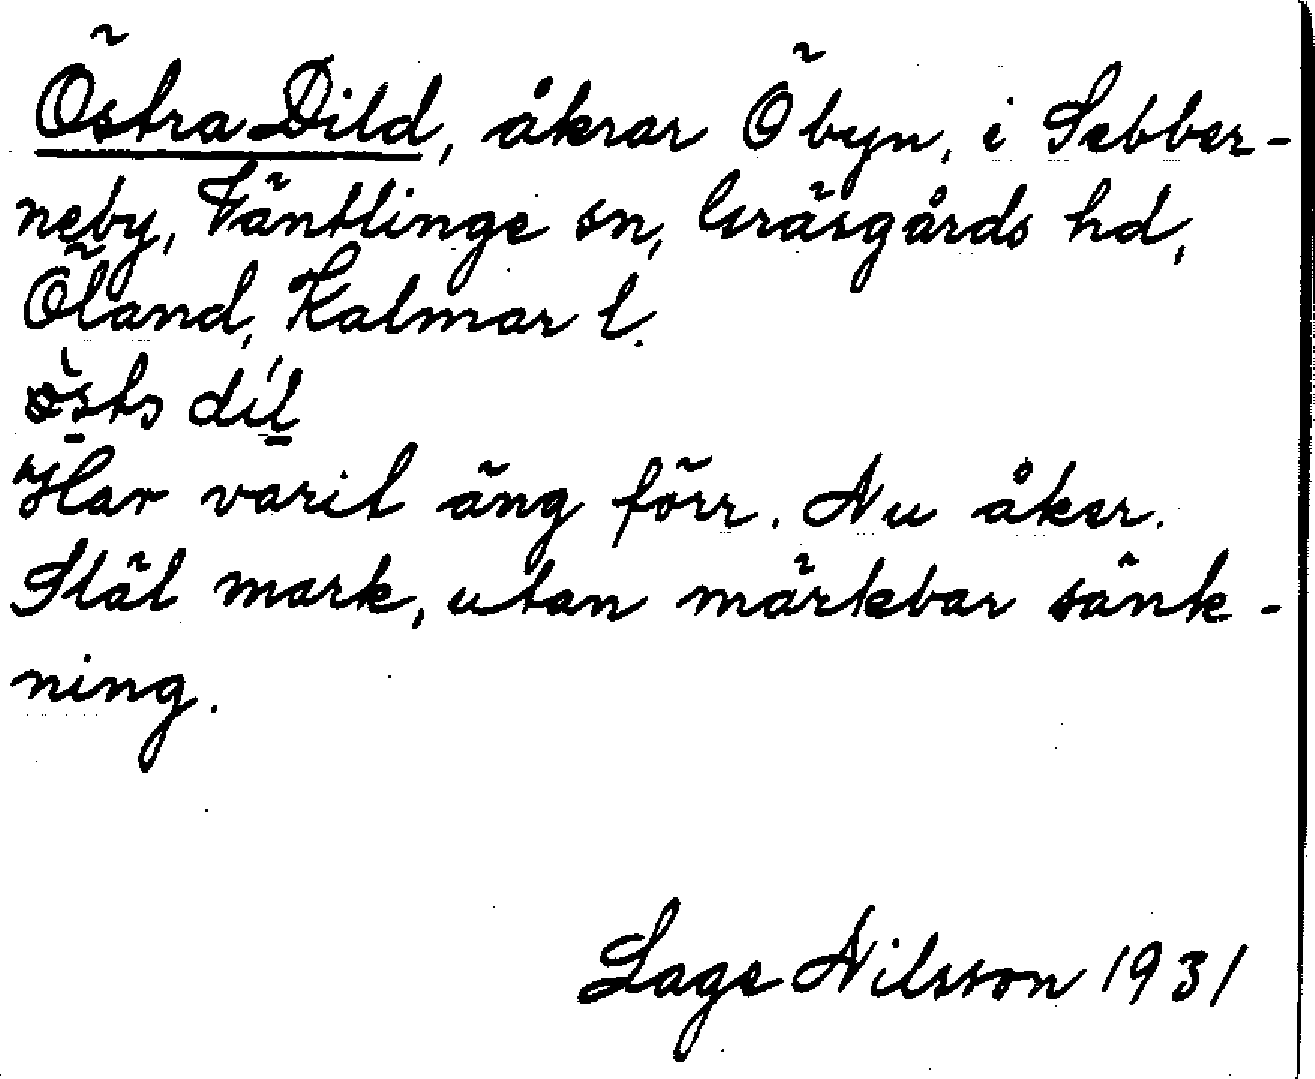 Östra Dild, åkrar Ö byn, i Sebber-
neby, Väntlinge sn, Gräsgårds hd,
Öland, Kalmar l.
östs dil
Har varit äng förr. Nu åker.
Slät mark, utan märkbar sänk-
ning.
Lage Nilsson 1931